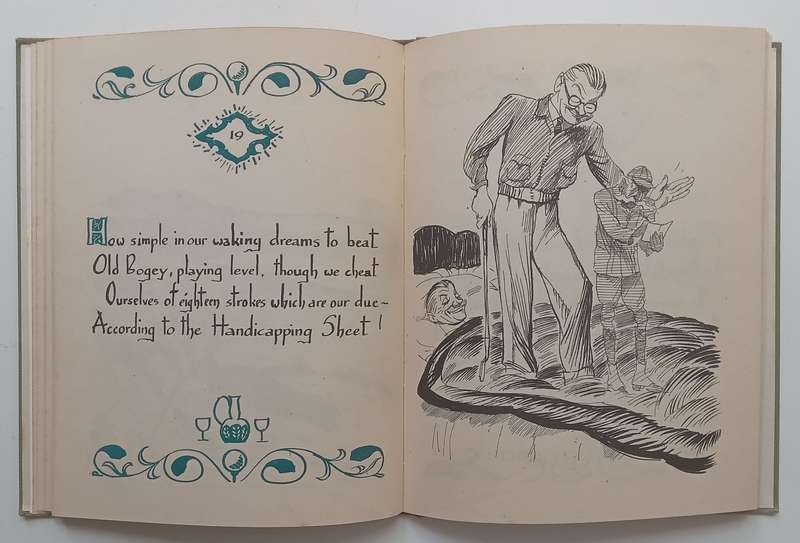 19
How simple in our waking dreams to beat
Old Bogey, playing level, though we cheat
Ourselves of eighteen strokes which are our due-
According to the Handicapping Sheet!